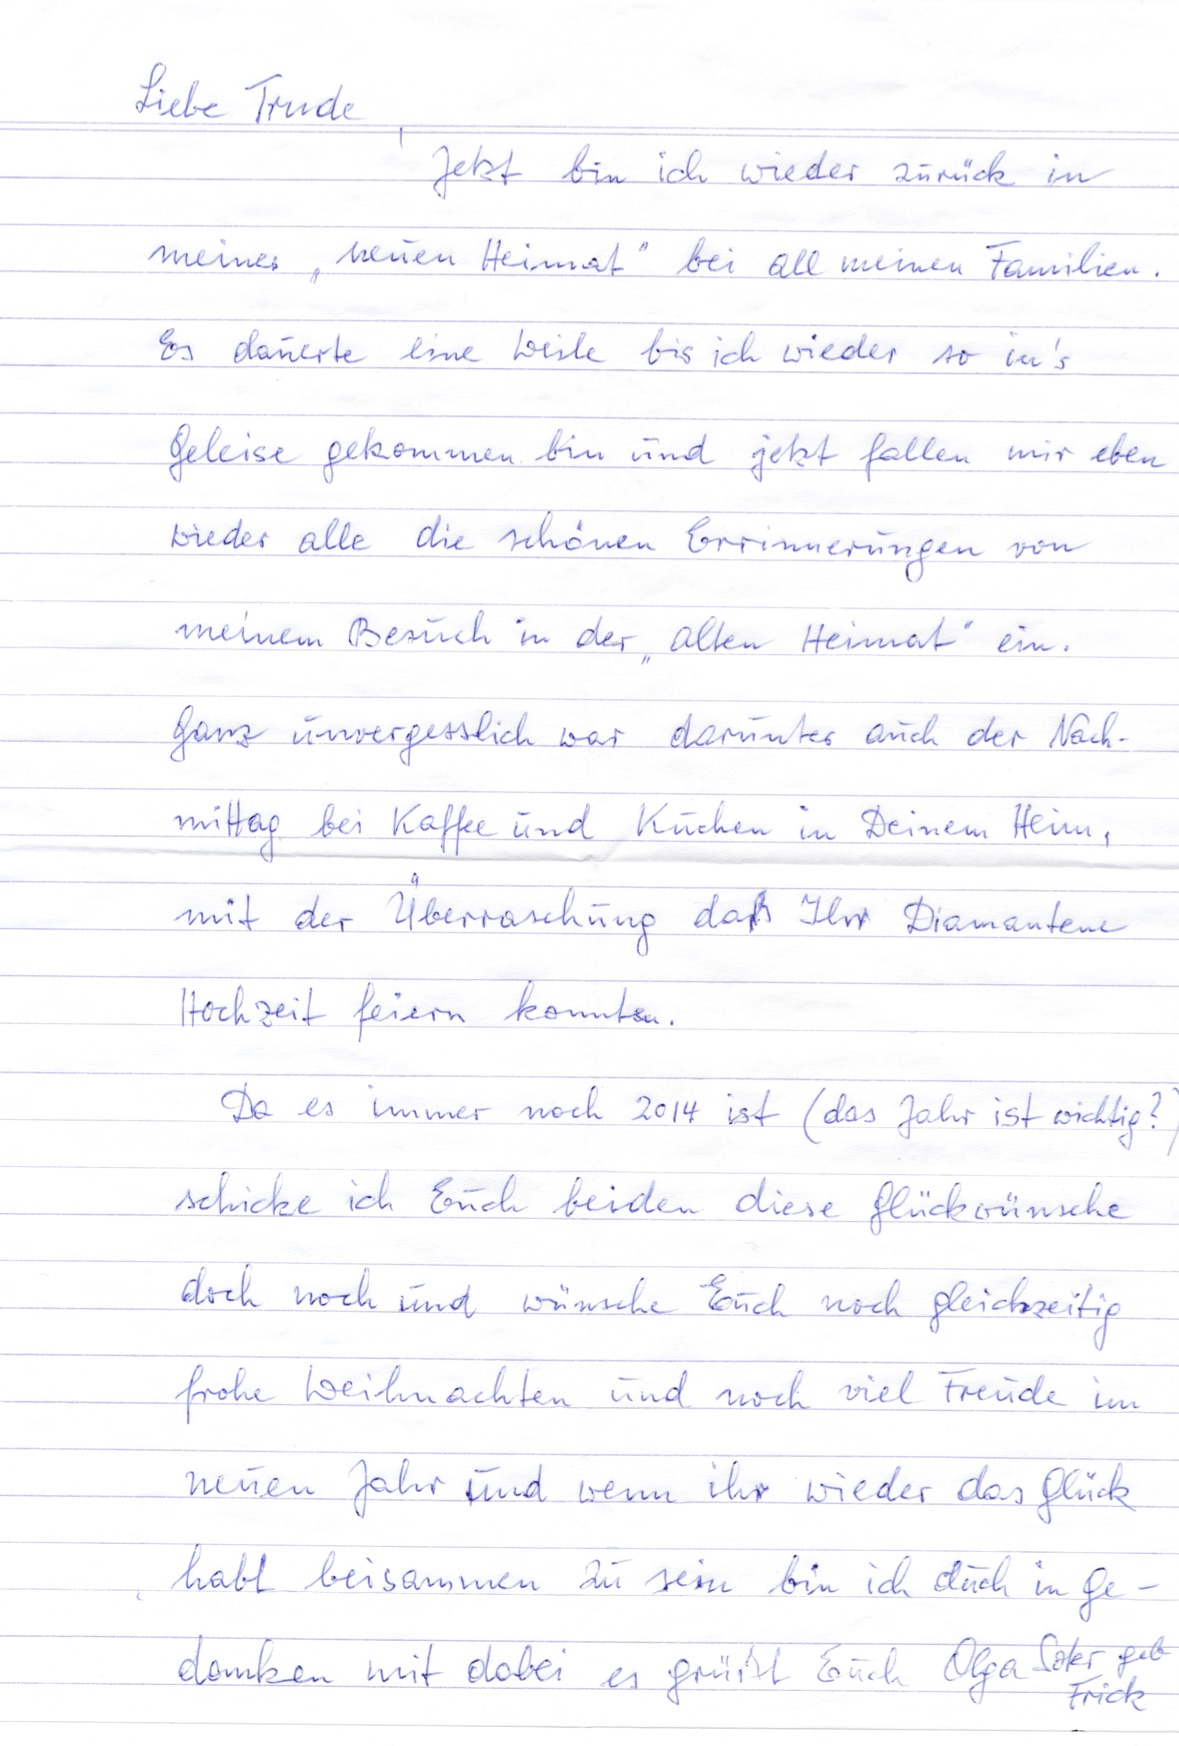 Liebe Trude,
Jetzt bin ich wieder zurück in
meiner „neuen Heimat" bei all meinen Familien.
Es dauerte eine Weile bis ich wieder so in's
Geleise gekommen bin und jetzt fallen mir eben
wieder alle die schönen Errinnerungen von
meinem Besuch in der „alten Heimat" ein.
Ganz unvergesslich war darunter auch der Nach-
mittag bei Kaffee und Kuchen in Deinem Heim,
mit der Überraschung daß Ihr Diamantene
Hochzeit feiern konnten.
Da es immer noch 2014 ist (das Jahr ist wichtig?)
schicke ich Euch beiden diese Glückwünsche
doch noch und wünsche Euch noch gleichzeitig
frohe Weihnachten und noch viel Freude im
neuen Jahr und wenn ihr wieder das Glück
habt beisammen zu sein bin ich auch in Ge-
danken mit dabei es grüßt Euch Olga geb
Frick